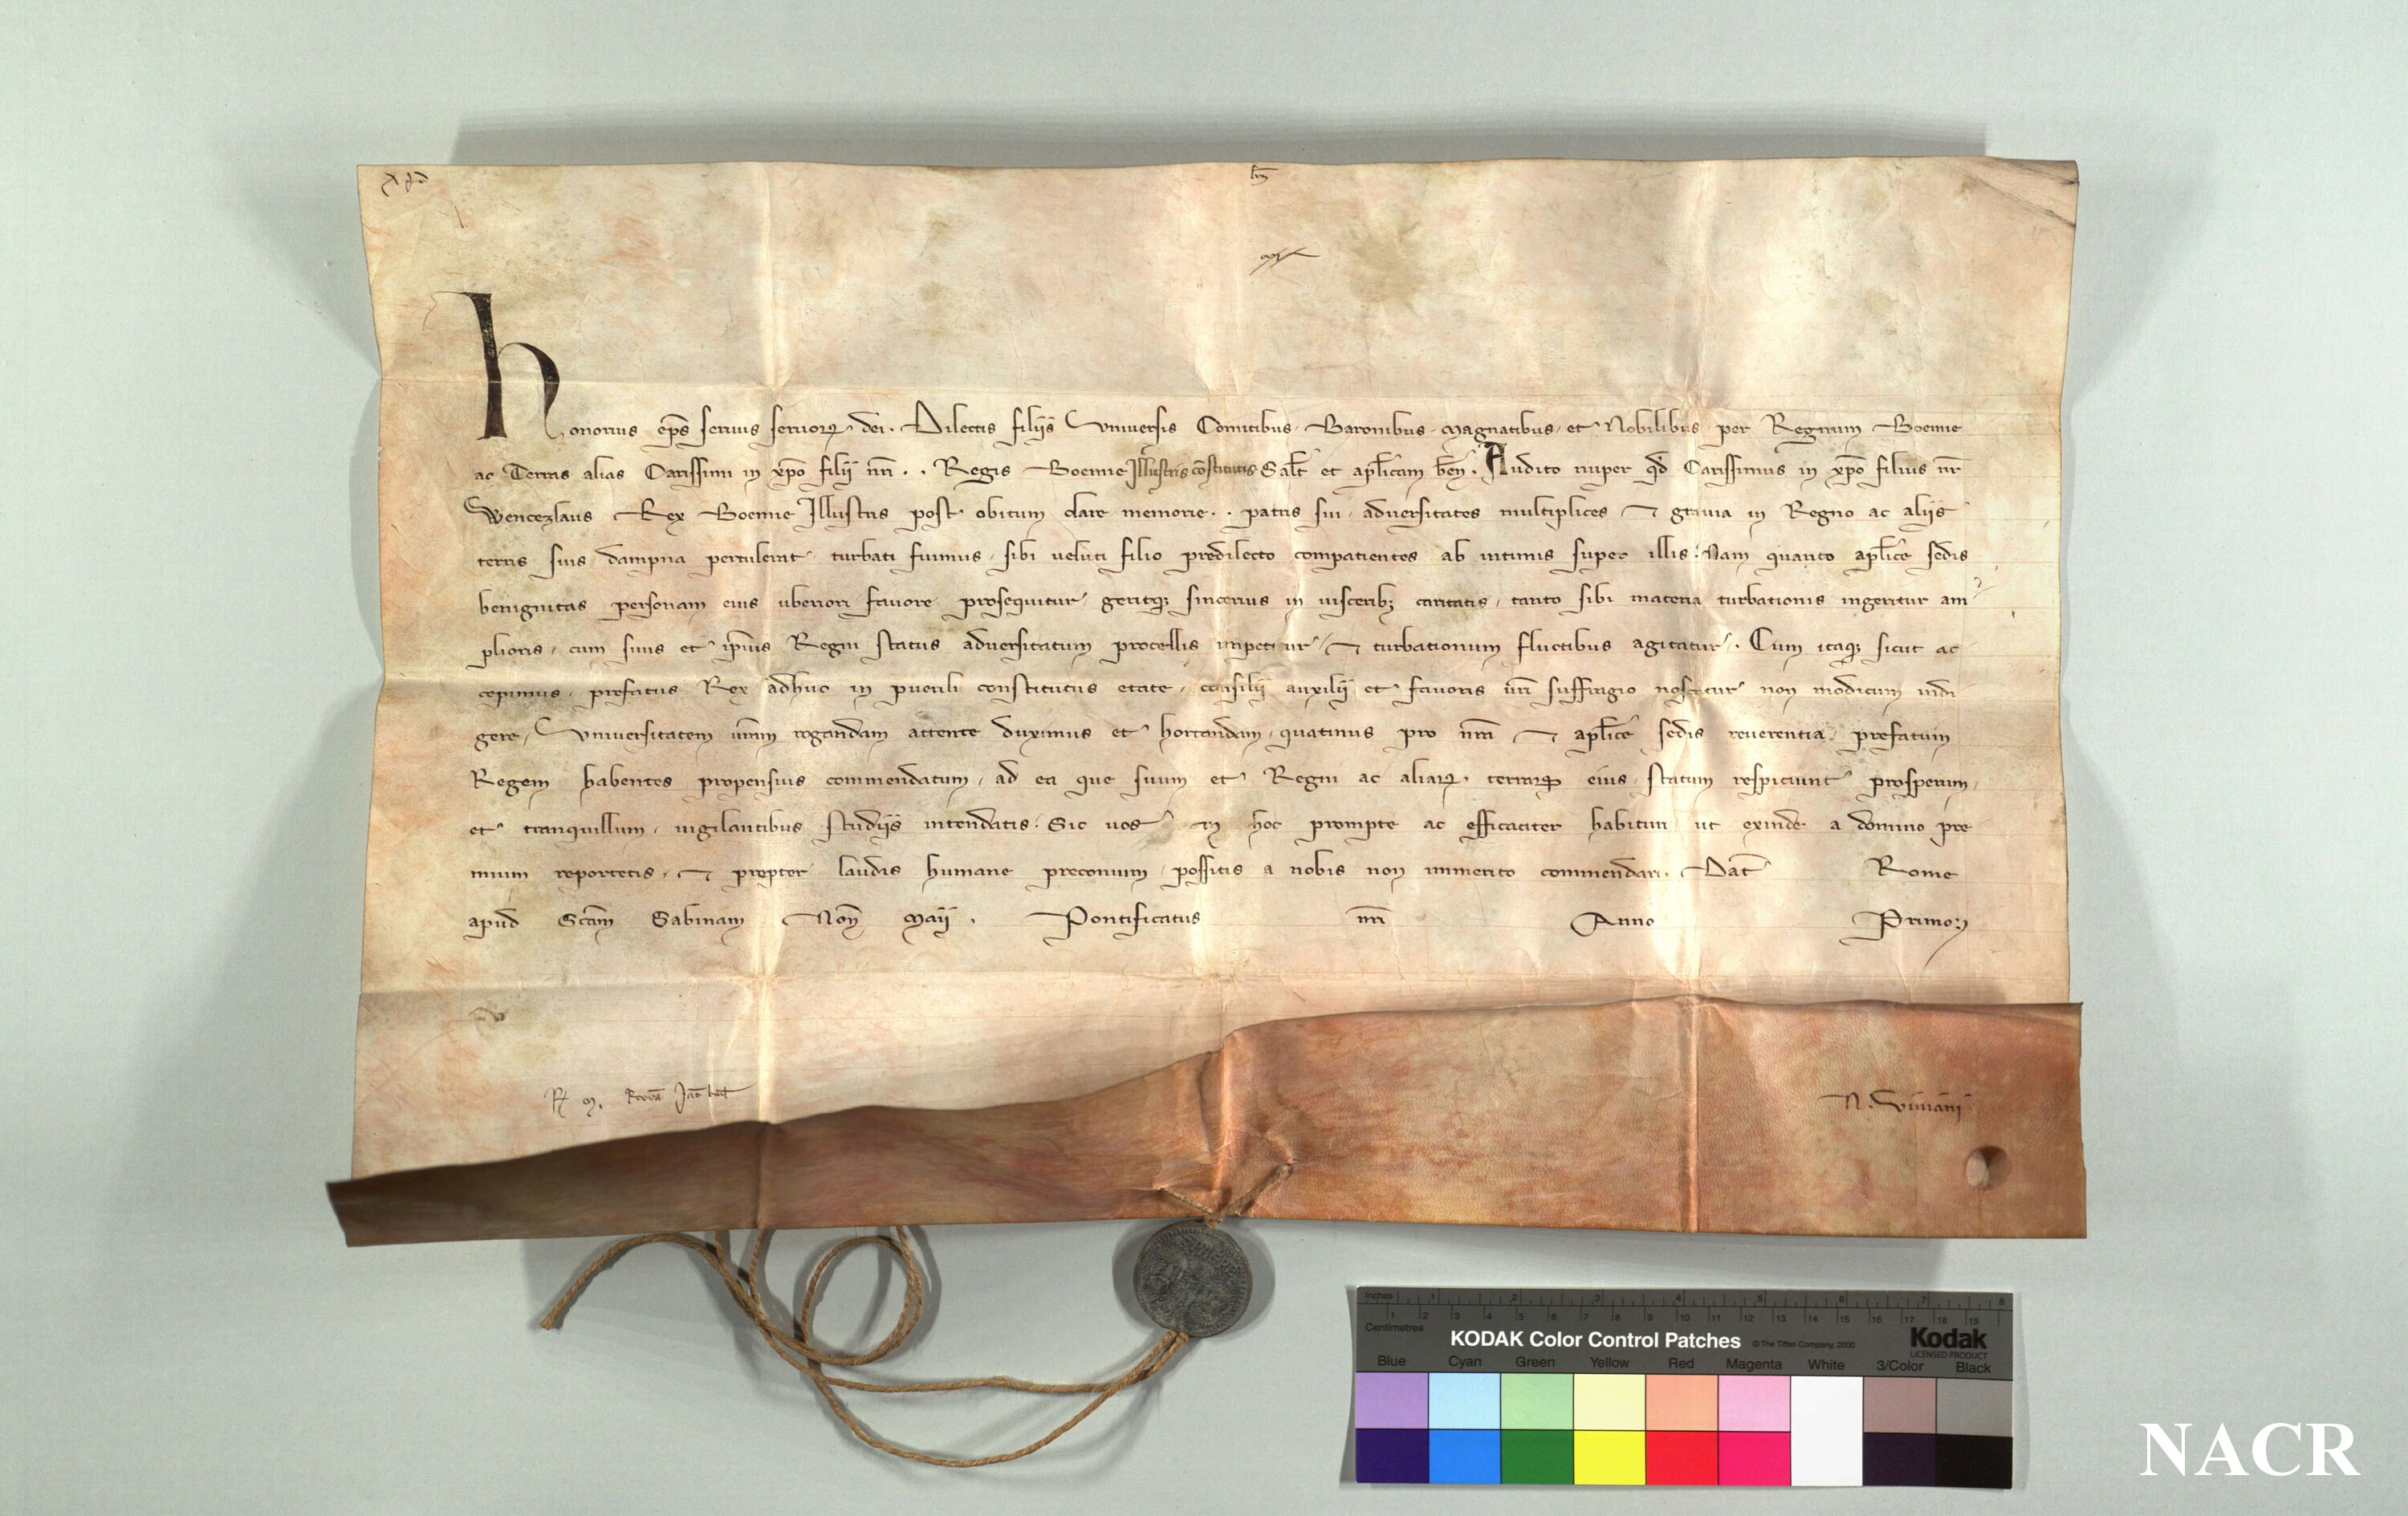 honorius ep̄s seruus seruoꝝ dei. Dilectis filiis Vniuersis Comitibus. Baronibus. Magnatibus. et Nobilibus per Regnum Boemie
ac Terras alias Carissimi in xp̄o filij nr̄i . . Regis Boemie Illustris cōstitutis Sal̄t et apl̄icam ben̄. Audito nuper qd̄ Carissimus in xp̄o filius nr̄
Wencezlaus Rex Boemie Illustris post obitum clare memorie . . patris sui aduersitates multiplices ⁊ grauia in Regno ac alijs
terris suis dampna pertulerat turbati fuimus, sibi veluti filio predilecto compatientes ab intimis super illis. Nam quanto apl̄ice sedis
benignitas personam eius vberiori fauore prosequitur, geritqꝫ sincerius in uisceribꝫ caritatis, tanto sibi materia turbationis ingeritur am
plioris, cum suus et ip̄ius Regni status aduersitatum procellis impetitur, ⁊ turbationum fluctibus agitatur. Cum itaqꝫ sicut ac
cepimus, prefatus Rex adhuc in puerili constitutus etate, consilij auxilij et fauoris ur̄i suffragio noscatur non modicum indi
gere, Vniuersitatem ur̄am rogandam attente duximus et hortandam, quatinus pro nr̄a ⁊ apl̄ice sedis reuerentia, prefatum
Regem habentes propensius commendatum, ad ea que suum et Regni ac aliaꝝ terraꝝ eius statum respiciunt prosperum,
et tranquillum, uigilantibus studijs intendatis. Sic uos in hoc prompte ac efficaciter habituri ut exinde a domino pre
mium reportetis, ⁊ propter laudis humane preconium, possitis a nobis non immerito commendari. Dat̄ Rome
apud Sc̄am Sabinam Non̄ Maij. Pontificatus nr̄i Anno Primo
N. Viuiani
Inches 1 2 3 4 5 6 7 8
Centimetres 1 2 3 4 5 6 7 8 9 10 11 12 13 14 15 16 17 18 19
KODAK Color Control Patches © The Tiffen Company, 2000 Kodak
LICENSED PRODUCT
Blue Cyan Green Yellow Red Magenta White 3/Color Black
NACR